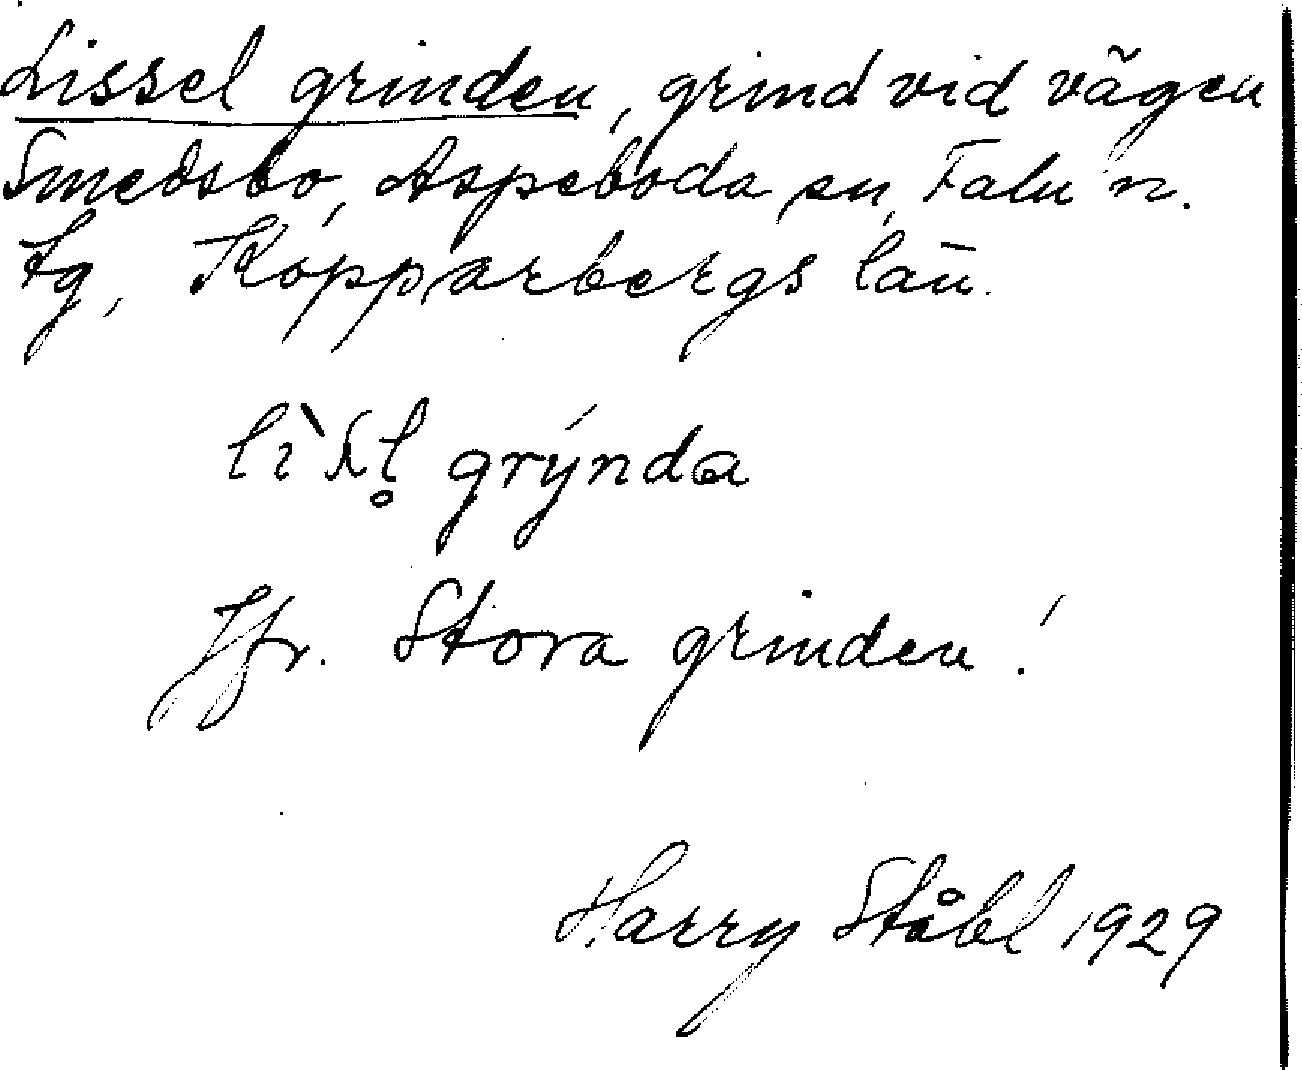 Lissel grinden, grind vid vägen
Smedsbo, Aspeboda sn, Falu n.
tg, Kopparbergs län.
grýnda
Jfr. Stora grinden!
Harry Ståhl 1929